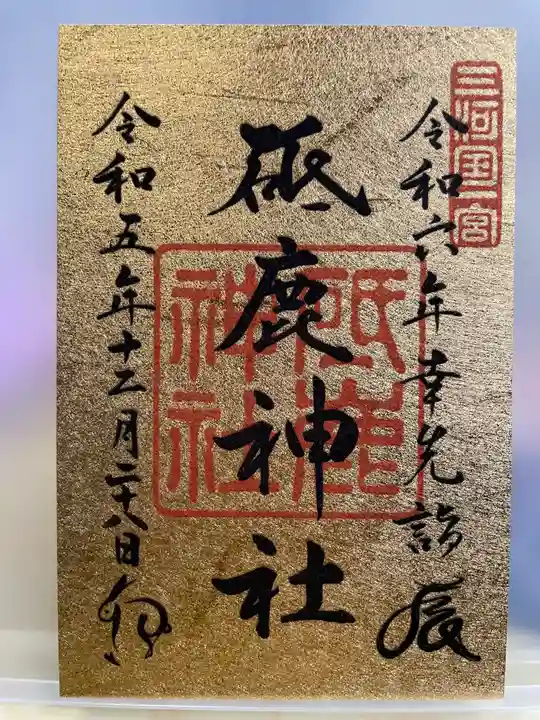 三河国一宮
令和六年幸先詣
辰
砥鹿神社
砥鹿神社
令和五年十二月二十八日